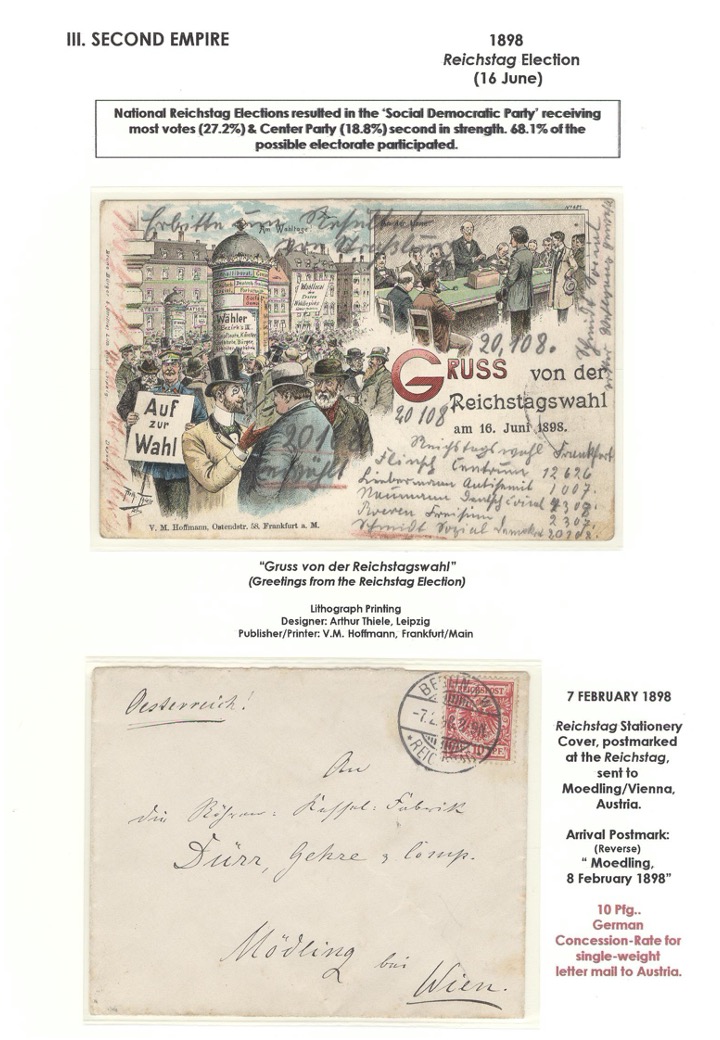 III. SECOND EMPIRE
1898
Reichstag Election
(16 June)
National Reichstag Elections resulted in the 'Social Democratic Party' receiving
most votes (27.2%) & Center Party (18.8%) second in strength. 68.1% of the
possible electorate participated.
Erbitte um Resultat
Am Wahltage
Wähler
Auf
zur
Wahl
20,108.
GRUSS von der
Reichstagswahl
20108
am 16. Juni 1898.
Reichstagswahl Frankfurt
Flinsch Centrum 12626
Liebermann Antisemit 1007.
Naumann
Freisinn 2307.
Schmidt Sozial
V. M. Hoffmann, Ostendstr. 58. Frankfurt a. M.
"Gruss von der Reichstagswahl"
(Greetings from the Reichstag Election)
Lithograph Printing
Designer: Arthur Thiele, Leipzig
Publisher/Printer: V.M. Hoffmann, Frankfurt/Main
Oesterreich!
BERLIN
REICHSPOST
-7.2.98
10 PF.
An
die Röhren-Kessel-Fabrik
Dürr, Gehre & Comp.
Mödling bei
Wien.
7 FEBRUARY 1898
Reichstag Stationery
Cover, postmarked
at the Reichstag,
sent to
Moedling/Vienna,
Austria.
Arrival Postmark:
(Reverse)
" Moedling,
8 February 1898"
10 Pfg..
German
Concession-Rate for
single-weight
letter mail to Austria.